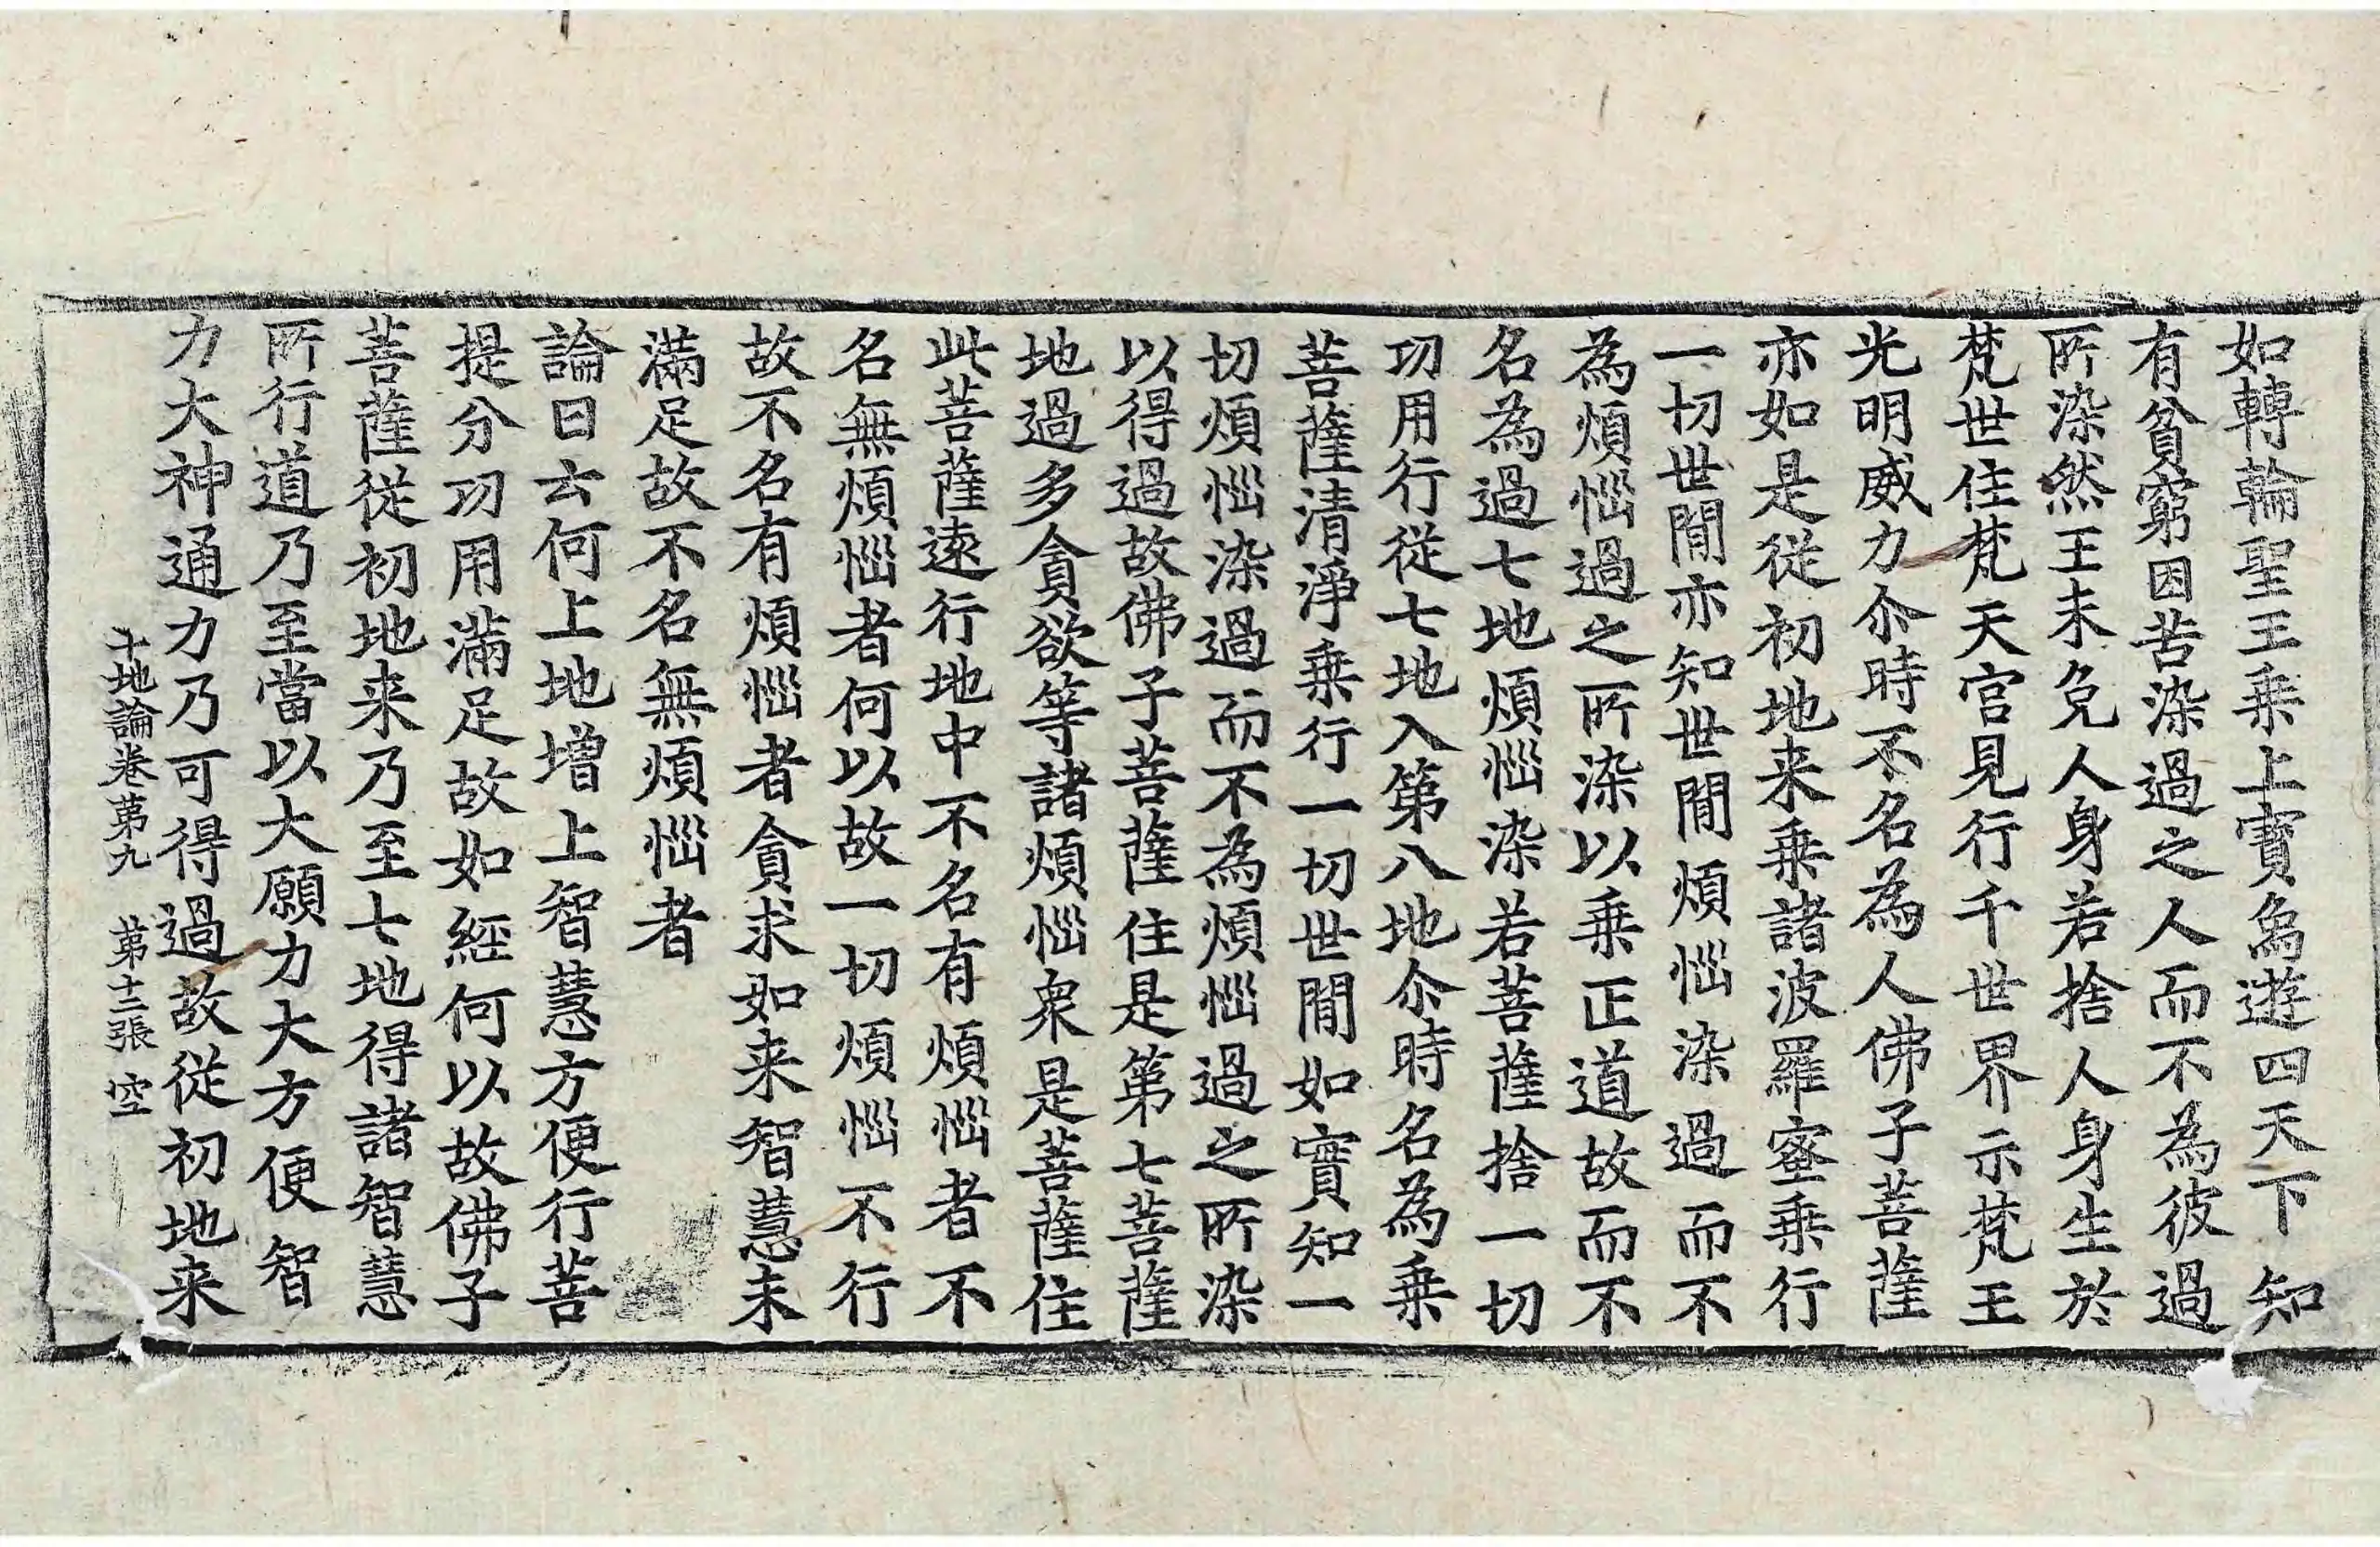 如轉輪聖王乗上寶𧰼遊四天下知
有貧窮因苦染過之人而不為彼過
所染然王未免人身若捨人身生於
梵世住梵天宫見行千世界示梵王
光明威力尒時不名為人佛子菩薩
亦如是従初地来乗諸波羅蜜乗行
一切世閒亦知世閒煩惱染過而不
為煩惱過之所染以乗正道故而不
名為過七地煩惱染若菩薩捨一切
功用行従七地入第八地尒時名為乗
菩薩清淨乗行一切世閒如實知一
切煩惱染過而不為煩惱過之所染
以得過故佛子菩薩住是第七菩薩
地過多貪欲等諸煩惱衆是菩薩住
此菩薩遠行地中不名有煩惱者不
名無煩惱者何以故一切煩惱不行
故不名有煩惱者貪求如来智慧未
滿足故不名無煩惱者
論曰云何上地增上智慧方便行菩
提分功用滿足故如經何以故佛子
菩薩従初地来乃至七地得諸智慧
所行道乃至當以大願力大方便智
力大神通力乃可得過故従初地来
十地論卷第九　第十二張　空